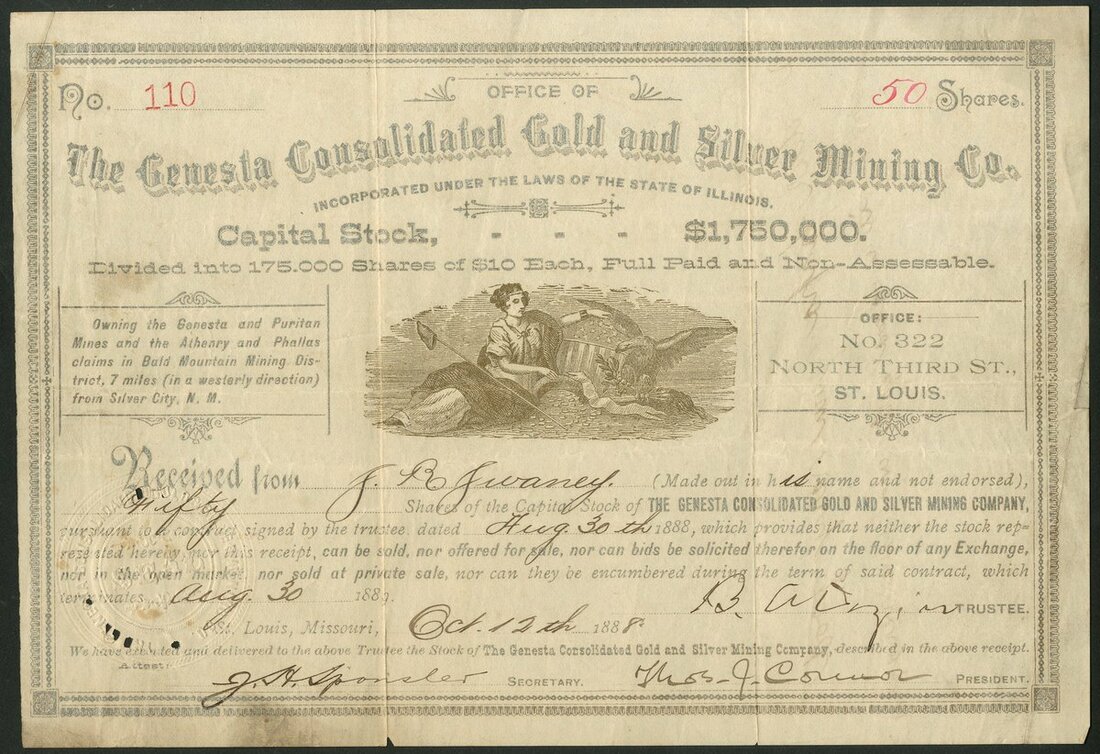 No. 110
OFFICE OF
50 Shares.
The Genesta Consolidated Gold and Silver Mining Co.
INCORPORATED UNDER THE LAWS OF THE STATE OF ILLINOIS.
Capital Stock, - - - $1,750,000.
Divided into 175.000 Shares of $10 Each, Full Paid and Non-Assessable.
Owning the Genesta and Puritan
Mines and the Athenry and Phallas
claims in Bald Mountain Mining Dis-
trict, 7 miles (in a westerly direction)
from Silver City, N. M.
OFFICE:
No. 322
NORTH THIRD ST.,
ST. LOUIS.
Received from J. R (Made out in his name and not endorsed),
Fifty Shares of the Capital Stock of THE GENESTA CONSOLIDATED GOLD AND SILVER MINING COMPANY,
pursuant to a contract signed by the trustee dated Aug. 30th 1888, which provides that neither the stock rep-
resented hereby, nor this receipt, can be sold, nor offered for sale, nor can bids be solicited therefor on the floor of any Exchange,
nor in the open market, nor sold at private sale, nor can they be encumbered during the term of said contract, which
terminates Aug. 30 1889.
B. TRUSTEE.
St. Louis, Missouri, Oct. 12th 1888.
We have executed and delivered to the above Trustee the Stock of The Genesta Consolidated Gold and Silver Mining Company, described in the above receipt.
Attest:
J. H. Sponsler SECRETARY. J. Connor PRESIDENT.